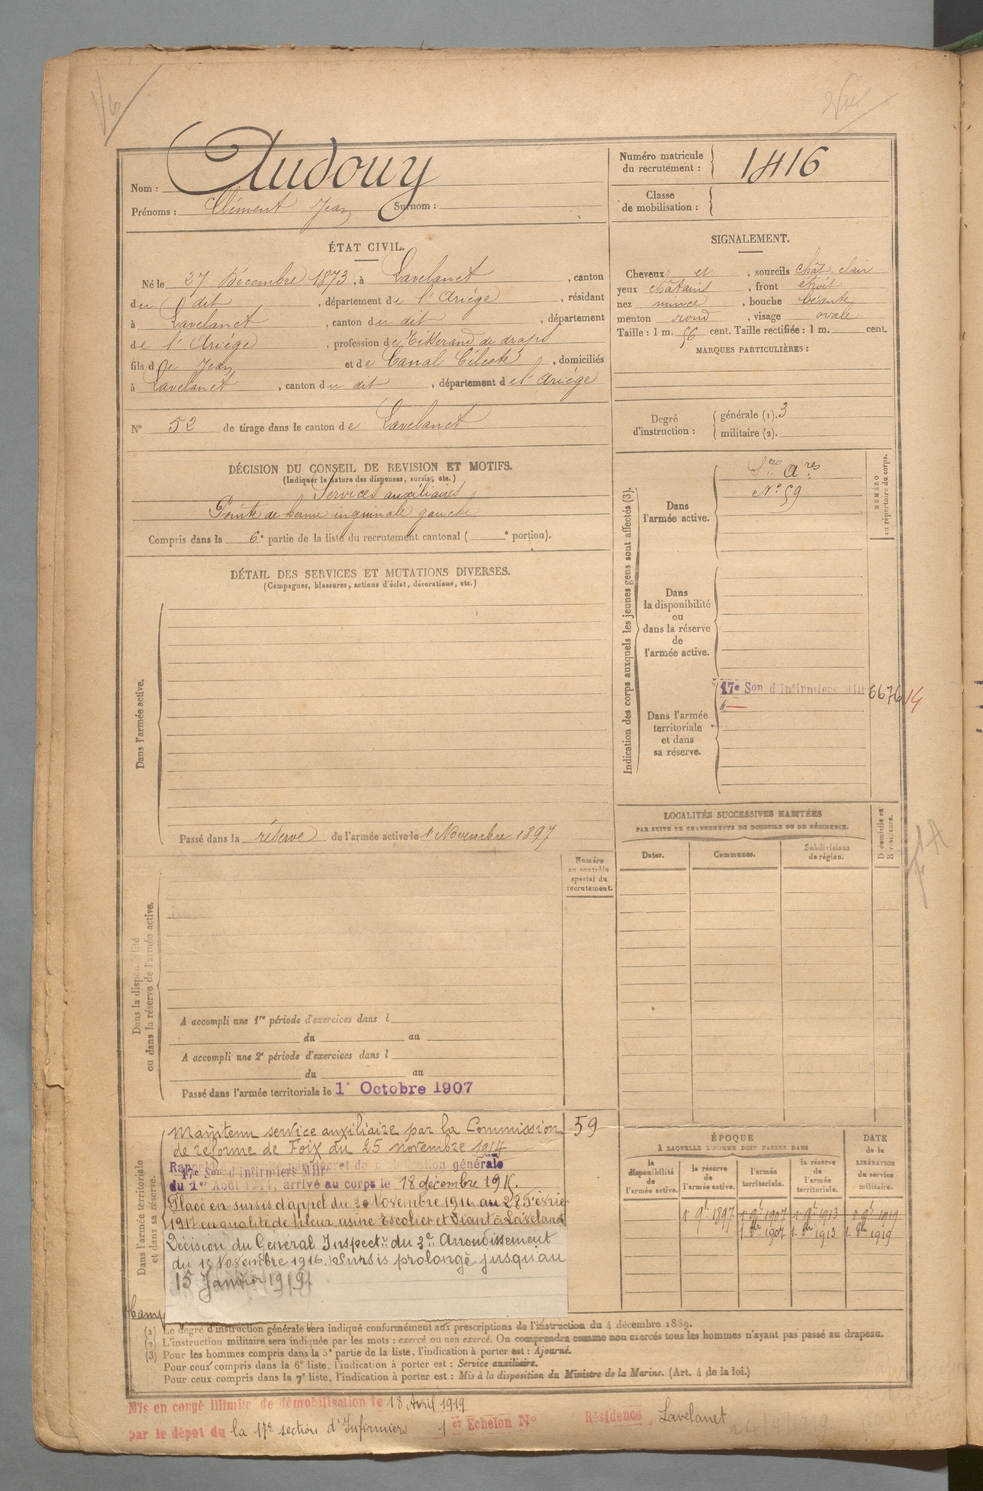 Nom : Audouy
Prénoms : Clément Jean Surnom :
Numéro matricule du recrutement : 1416
Classe de mobilisation :
ÉTAT CIVIL.
Né le 27 Décembre 1873, à Lavelanet, canton
du dit, département de l'Ariège, résidant
à Lavelanet, canton du dit, département
de l'Ariège, profession de Tisserand de draps
fils de Jean et de Canal Céleste, domiciliés
à Lavelanet, canton du dit, département de l'Ariège
N° 52 de tirage dans le canton de Lavelanet
SIGNALEMENT.
Cheveux et, sourcils chât. clair
yeux châtains, front étroit
nez mince, bouche béante
menton rond, visage ovale
Taille : 1 m. 56 cent. Taille rectifiée : 1 m. cent.
MARQUES PARTICULIÈRES :
Degré d'instruction : générale (1). 3
militaire (2).
DÉCISION DU CONSEIL DE REVISION ET MOTIFS.
(Indiquer la nature des dispenses, sursis, etc.)
Services auxiliaires
Pointe de hernie inguinale gauche
Compris dans la 6e partie de la liste du recrutement cantonal ( e portion).
DÉTAIL DES SERVICES ET MUTATIONS DIVERSES.
(Campagnes, blessures, actions d'éclat, décorations, etc.)
Dans l'armée active.
Passé dans la réserve de l'armée active le 1 Novembre 1897
Indication des corps auxquels les jeunes gens sont affectés (3).
NUMÉRO au répertoire du corps.
Dans l'armée active.
Sces Ares
N° 59
Dans
la disponibilité
ou
dans la réserve
de
l'armée active.
Dans l'armée
territoriale
et dans
sa réserve.
17e Son d'Infirmiers Mlir 6676 14
LOCALITÉS SUCCESSIVES HABITÉES
PAR SUITE DE CHANGEMENTS DE DOMICILE OU DE RÉSIDENCE.
Dates.
Communes.
Subdivisions de région.
Domicile ou Résidence.
Numéro au contrôle spécial du recrutement.
Dans la disponibilité
ou dans la réserve de l'armée active.
A accompli une 1re période d'exercices dans l
du au
A accompli une 2e période d'exercices dans l
du au
Passé dans l'armée territoriale le 1er Octobre 1907
Dans l'armée territoriale
et dans sa réserve.
Maintenu service auxiliaire par la Commission 59
de réforme de Foix du 25 novembre 1914
17e Son d'Infirmiers Mlir
mobilisation générale
du 1er Août 1914, arrivé au corps le 18 décembre 19
Placé en sursis d'appel du 30 Novembre 1916 au 28 Février
1917 en qualité de fileur usine Escolier et Viant à Lavelanet
Décision du Général Inspectr du 3e Arrondissement
du 15 Novembre 1916. Sursis prolongé jusqu'au
15 Janvier 1919
Camp
ÉPOQUE
À LAQUELLE L'HOMME DOIT PASSER DANS
la disponibilité de l'armée active.
la réserve de l'armée active.
l'armée territoriale.
la réserve de l'armée territoriale.
DATE de la LIBÉRATION du service militaire.
1 9b 1897 1 9b 1907 1 9b 1913 1 9b 1919
1 8bre 1907 1 8bre 1913 1 8bre 1919
(1) Le degré d'instruction générale sera indiqué conformément aux prescriptions de l'instruction du 4 décembre 1889.
(2) L'instruction militaire sera indiquée par les mots : exercé ou non exercé. On comprendra comme non exercés tous les hommes n'ayant pas passé au drapeau.
(3) Pour les hommes compris dans la 5e partie de la liste, l'indication à porter est : Ajourné.
Pour ceux compris dans la 6e liste, l'indication à porter est : Service auxiliaire.
Pour ceux compris dans la 7e liste, l'indication à porter est : Mis à la disposition du Ministre de la Marine. (Art. 4 de la loi.)
Mis en congé illimité de démobilisation le 18 Avril 1919
par le dépôt du la 17e section d'Infirmiers 1er Echelon N° Résidence Lavelanet